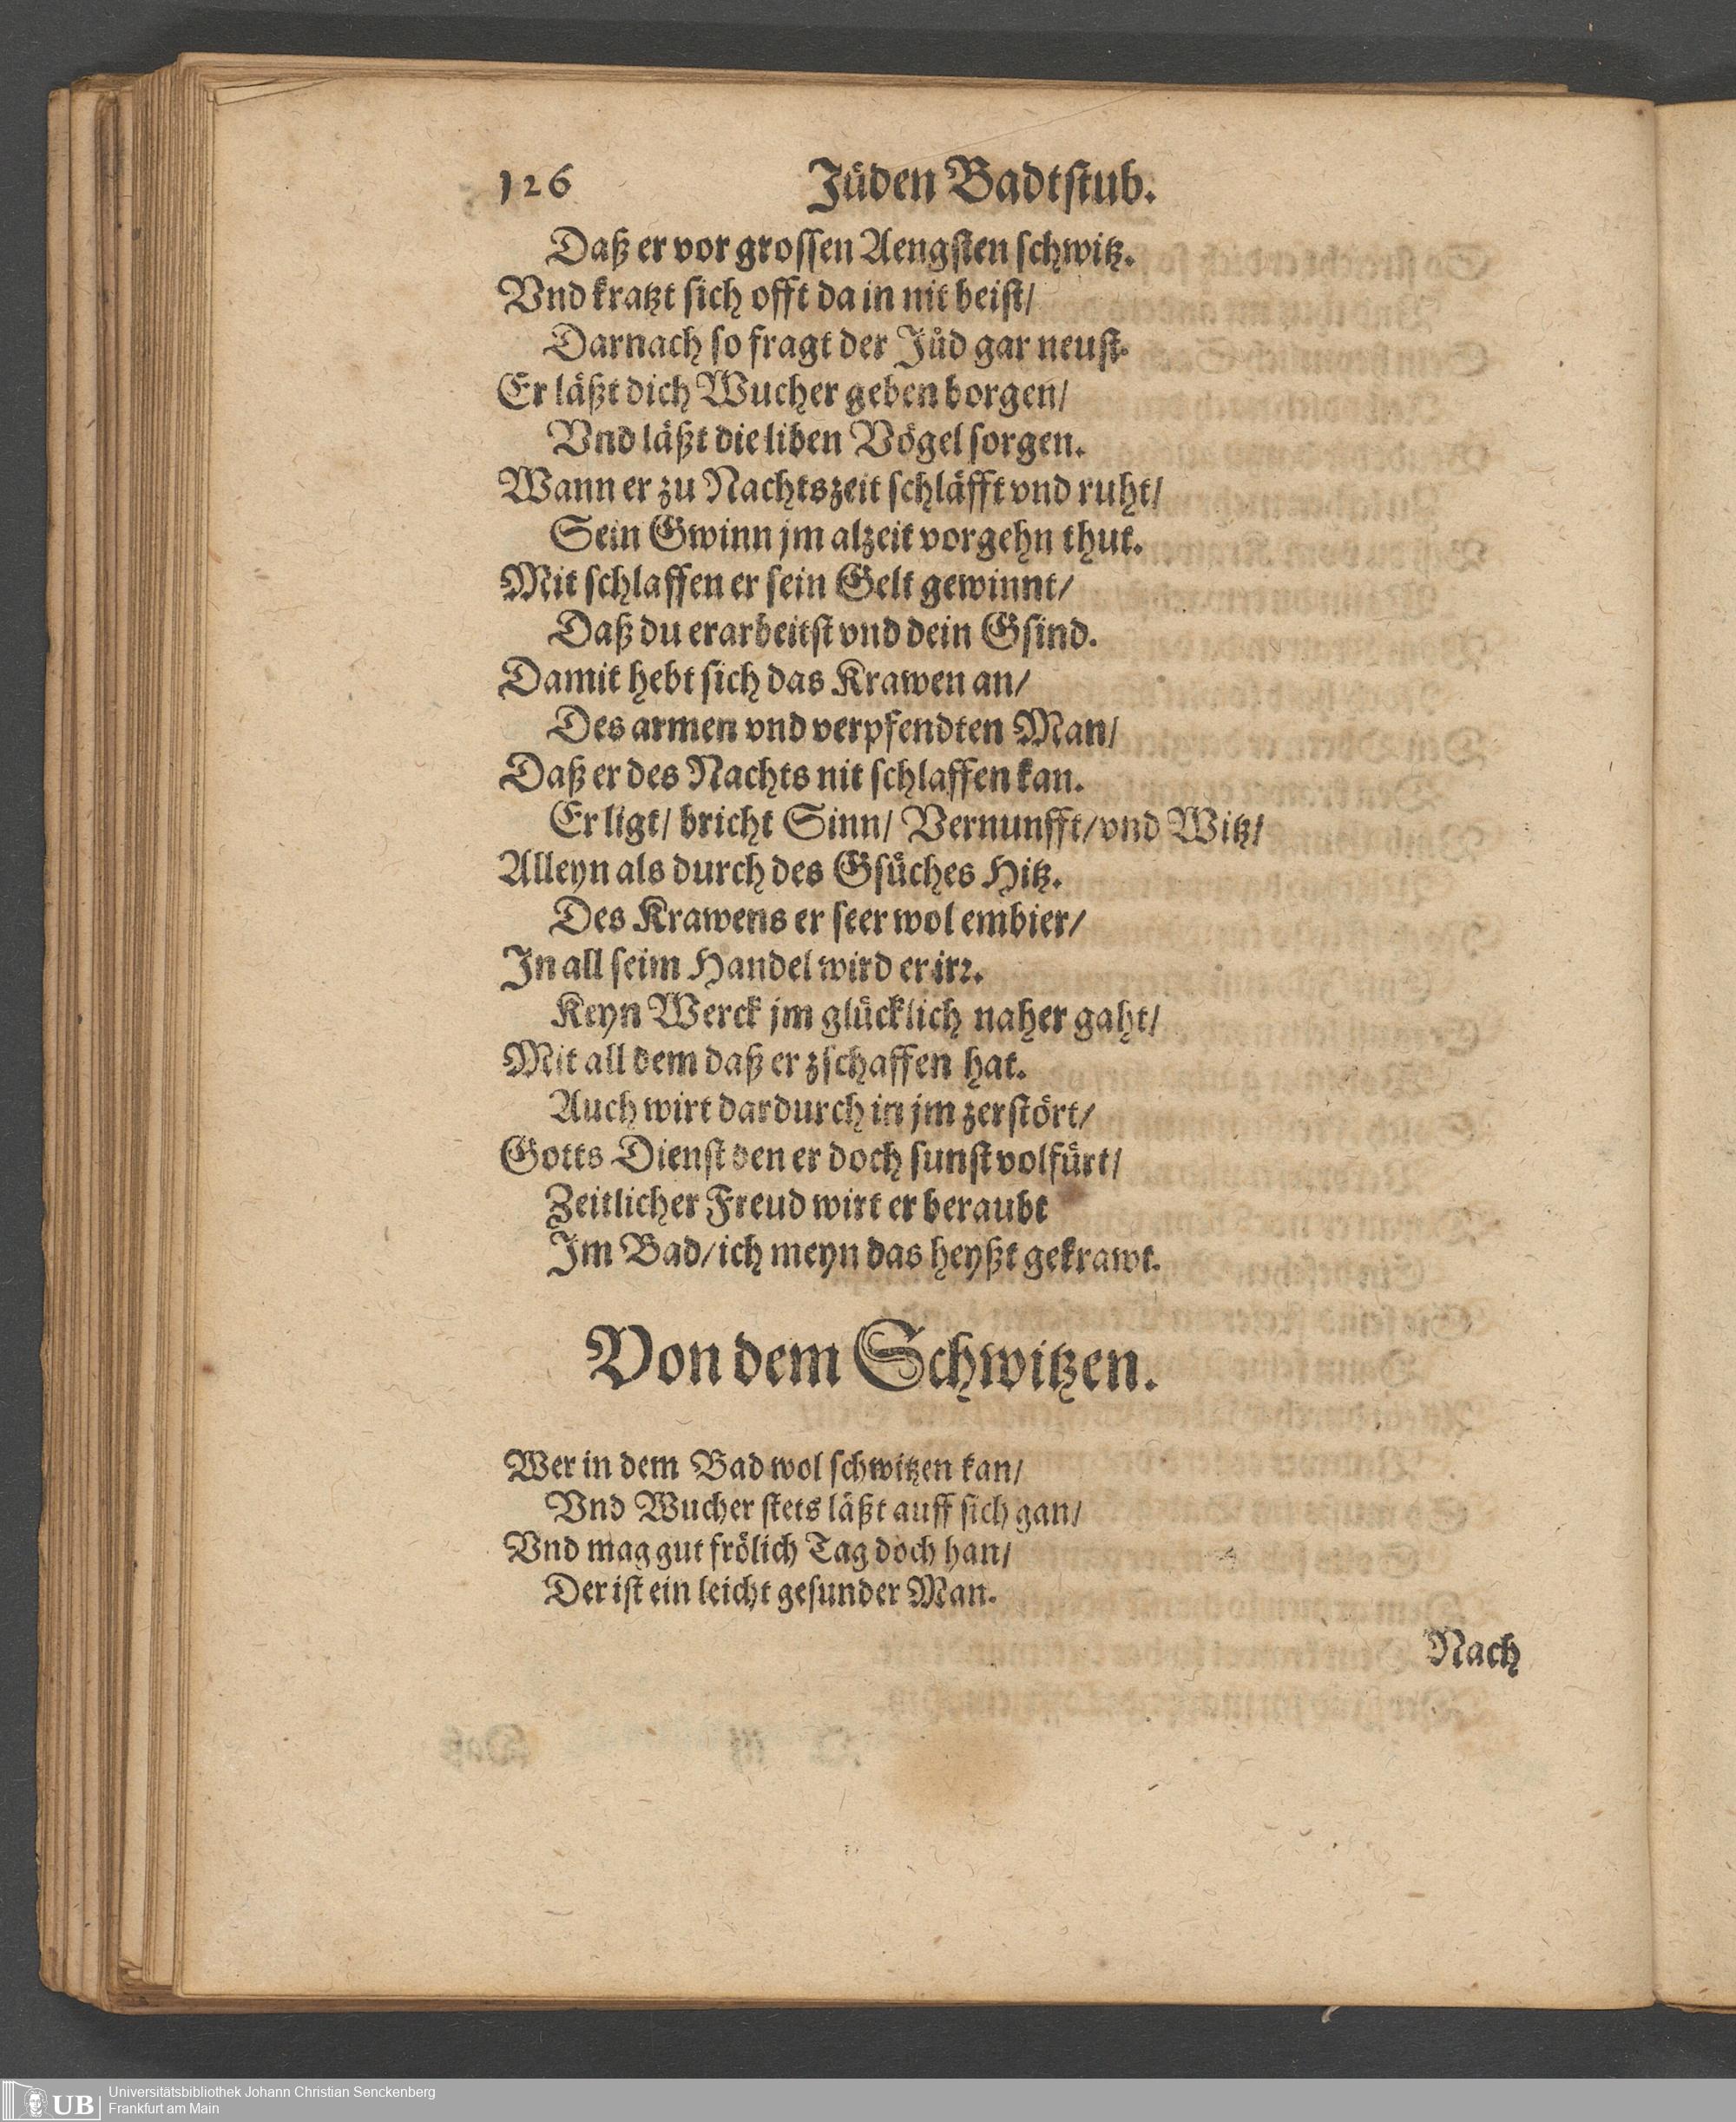 126 Jůden Badtſtub.
Daß er vor groſſen Aengſten ſchwitz.
Vnd kratzt ſich offt da in nit beiſt/
Darnach ſo fragt der Jůd gar neuſt.
Er låßt dich Wucher geben borgen/
Vnd låßt die liben Vögel ſorgen.
Wann er zu Nachtszeit ſchläfft vnd ruht/
Sein Gwinn jm alzeit vorgehn thut.
Mit ſchlaffen er ſein Gelt gewinnt/
Daß du erarbeitſt vnd dein Gſind.
Damit hebt ſich das Krawen an/
Des armen vnd verpfendten Man/
Daß er des Nachts nit ſchlaffen kan.
Er ligt/ bricht Sinn/ Vernunfft/ vnd Witz/
Alleyn als durch des Gſůches Hitz.
Des Krawens er ſeer wol embier/
In all ſeim Handel wird er irꝛ.
Keyn Werck jm glůcklich naher gaht/
Mit all dem daß er zſchaffen hat.
Auch wirt dardurch in jm zerſtört/
Gotts Dienſt den er doch ſunſt volfůrt/
Zeitlicher Freud wirt er beraubt
Im Bad/ ich meyn das heyßt gekrawt.
Von dem Schwitzen.
Wer in dem Bad wol ſchwitzen kan/
Vnd Wucher ſtets läßt auff ſich gan/
Vnd mag gut frölich Tag doch han/
Der iſt ein leicht geſunder Man.
Nach
UB Universitätsbibliothek Johann Christian Senckenberg
Frankfurt am Main